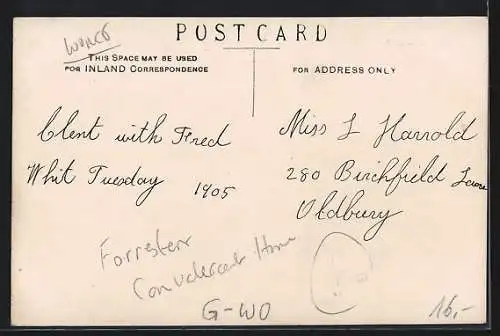 WORCS
POST CARD
THIS SPACE MAY BE USED
FOR INLAND CORRESPONDENCE
FOR ADDRESS ONLY
Clent with Fred
Whit Tuesday 1905
Miss L Harrold
280 Birchfield Lane
Oldbury
Forresters
Convalescent Home
G-WO
16,-